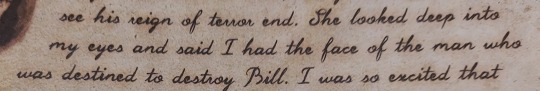 see his reign of terror end. She looked deep into
my eyes and said I had the face of the man who
was destined to destroy Bill. I was so excited that